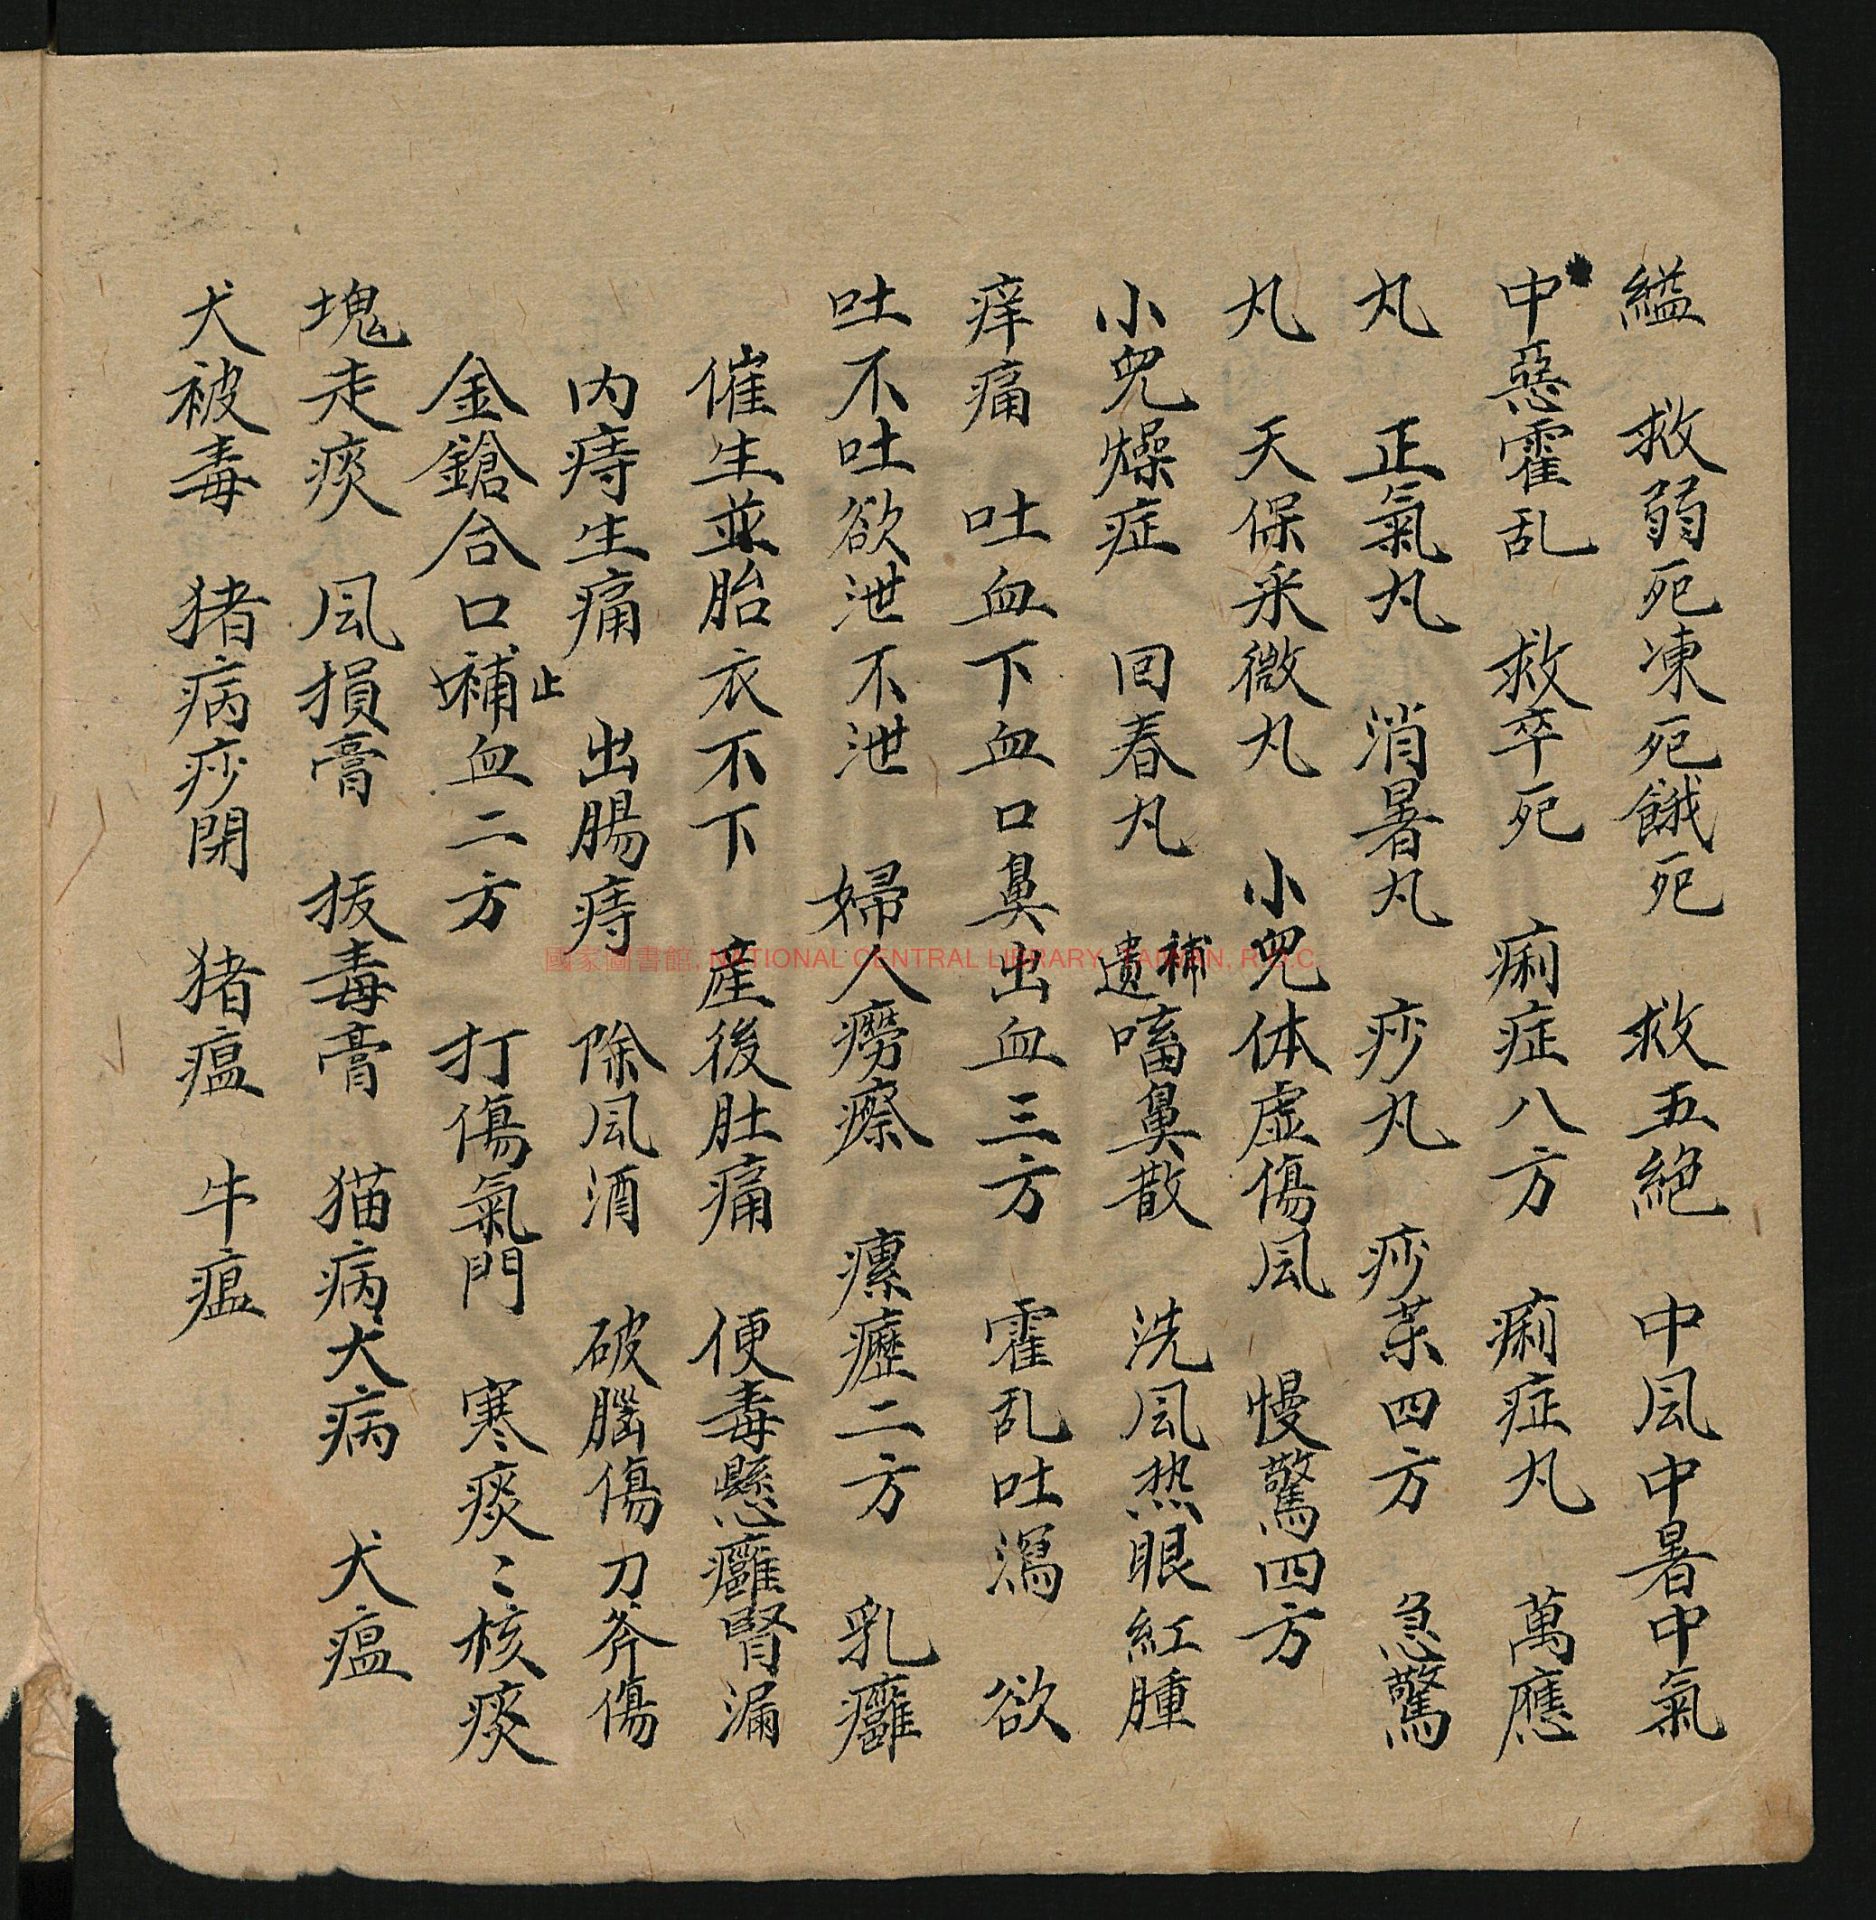 縊　救弱死凍死餓死　救五絕　中風中暑中氣
中惡霍乱　救卒死　痢症八方　痢症丸　萬應
丸　正氣丸　消暑丸　痧丸　痧茱四方　急驚
丸　天保采微丸　小兒体虛傷風　慢驚四方
小兒燥症　回春丸　補遺嗜鼻散　洗風热眼紅腫
痒痛　吐血下血口鼻出血三方　霍乱吐瀉　欲
吐不吐欲泄不泄　婦人癆瘵　瘰癧二方　乳癰
催生並胎衣不下　產後肚痛　便毒懸癰腎漏
內痔生痛　出腸痔　除風酒　破腦傷刀斧傷
金鎗合口補止血二方　打傷氣門　寒痰〻核痰
塊走痰　風損膏　拔毒膏　猫病犬病　犬瘟
犬被毒　猪病痧閉　猪瘟　牛瘟
國家圖書館, NATIONAL CENTRAL LIBRARY, TAIWAN, R.O.C.